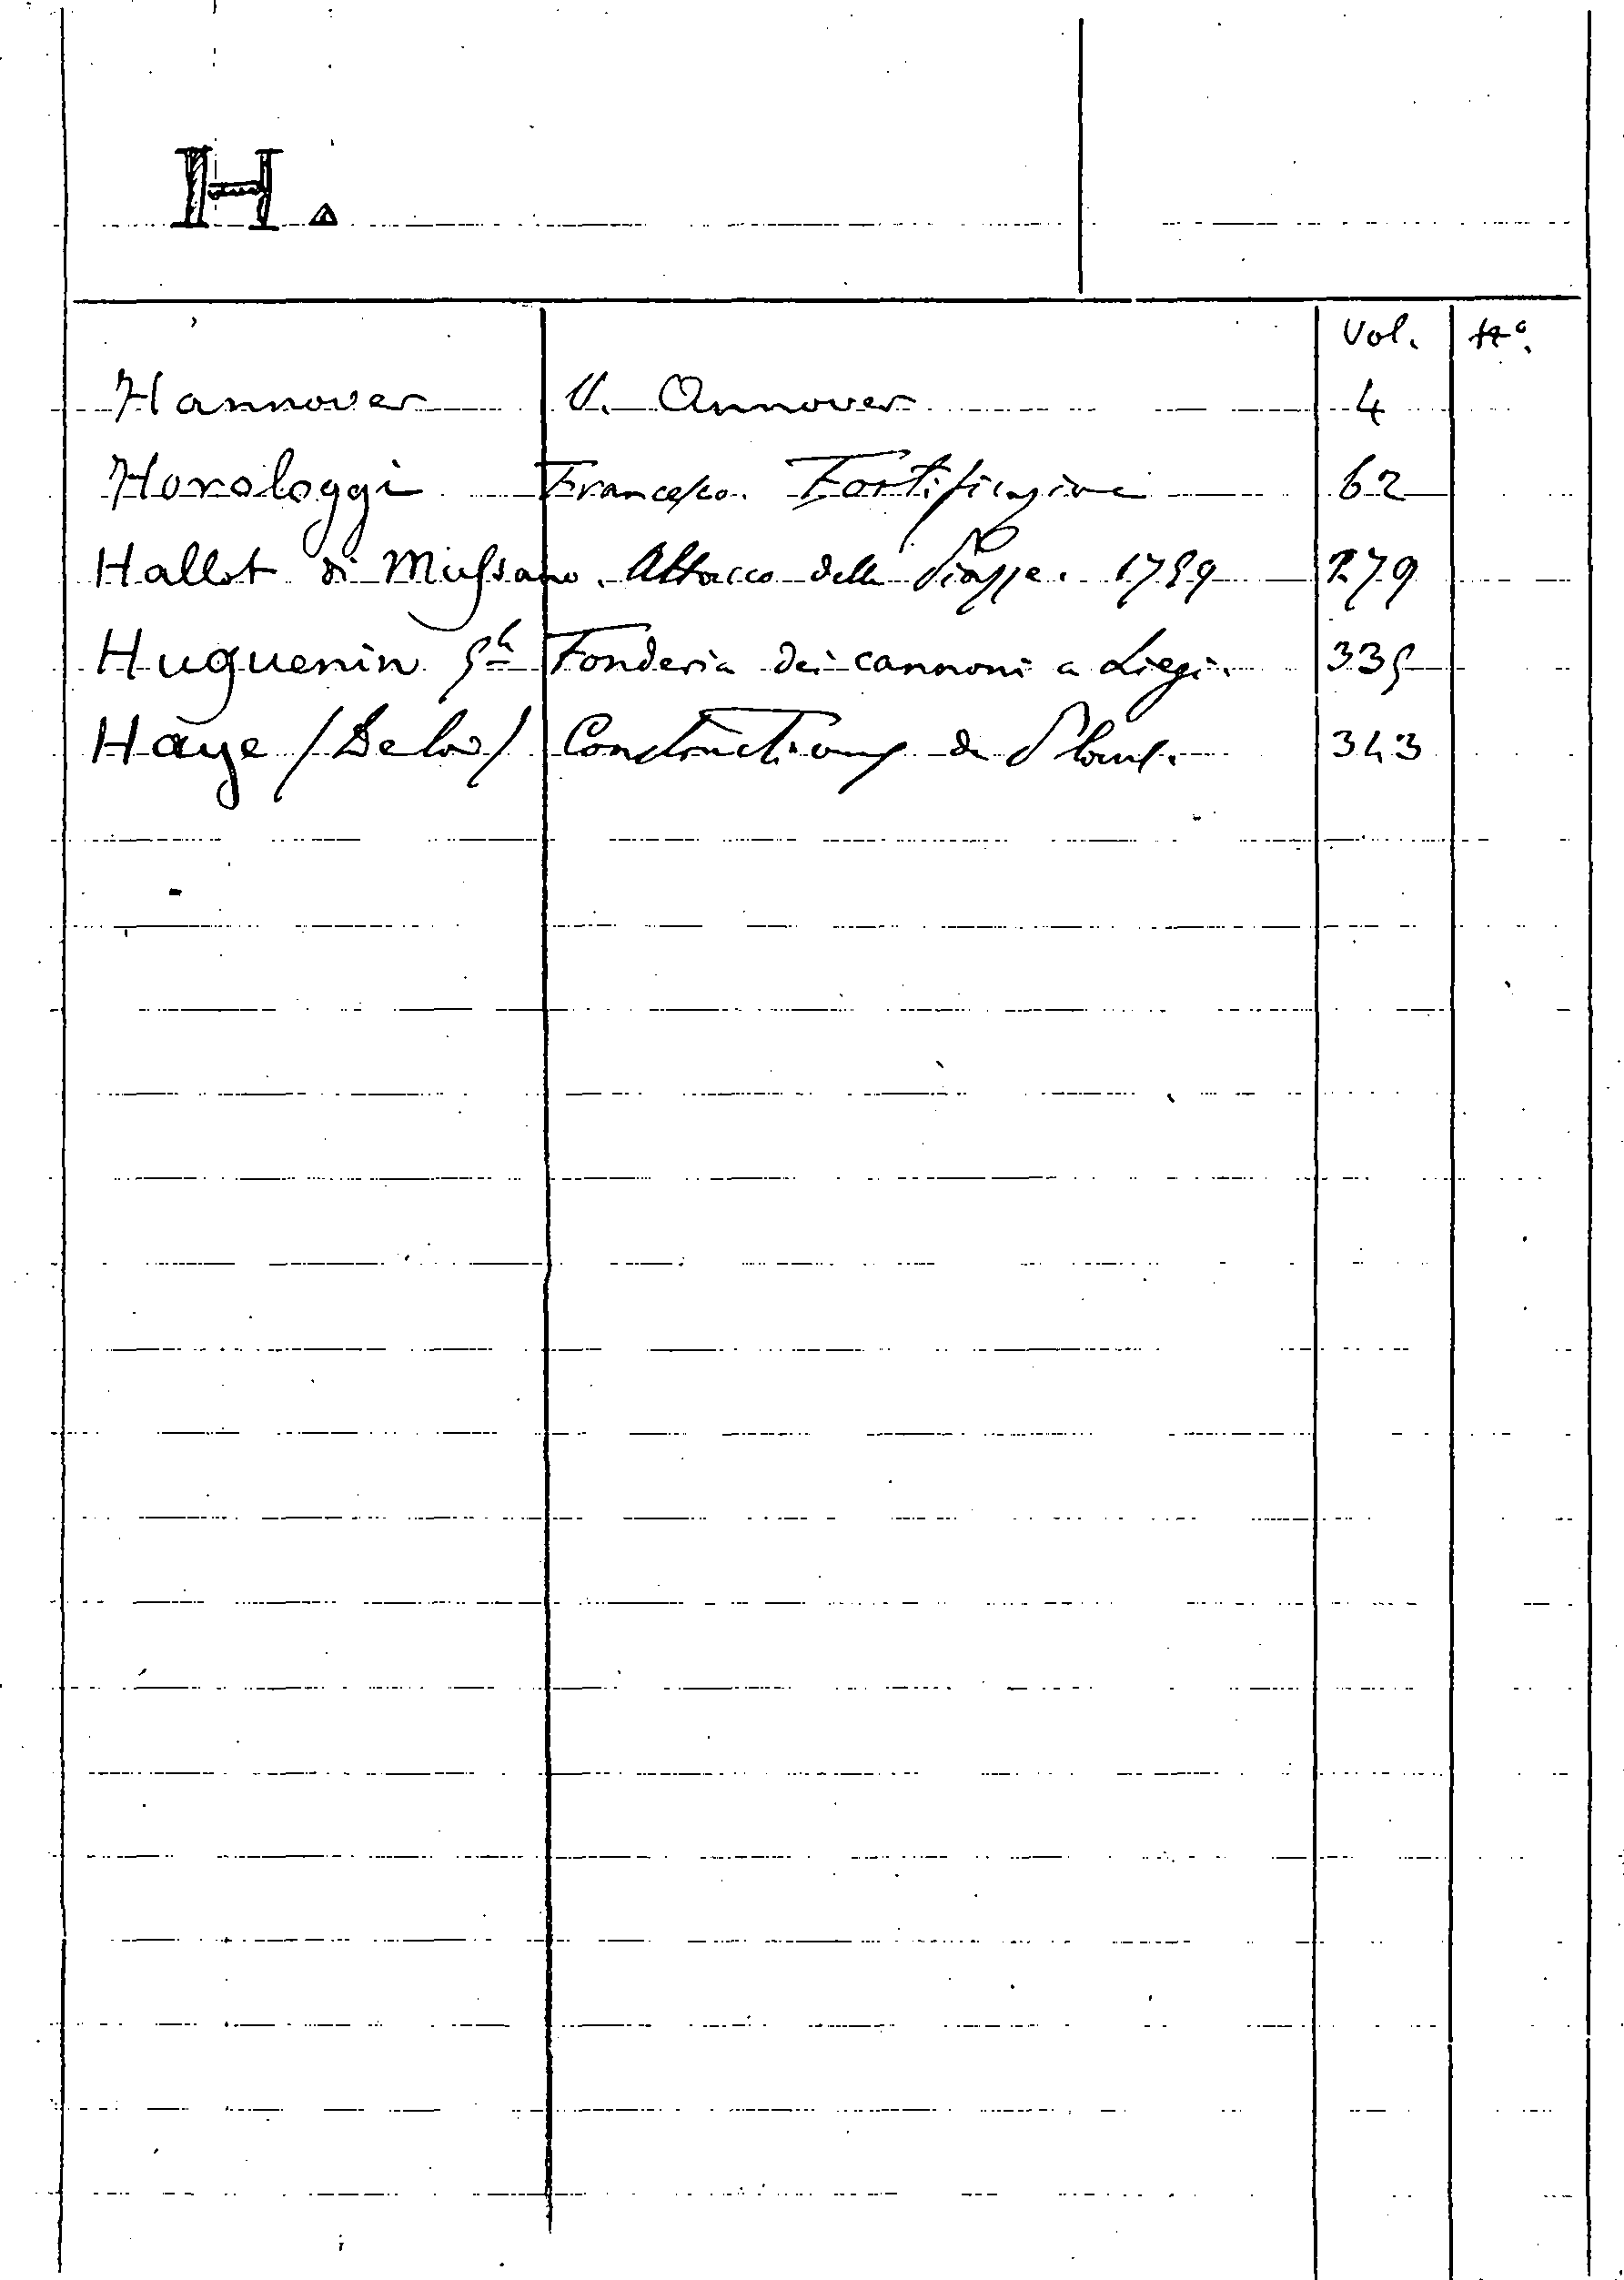 H.
Vol. N°.
Hannover V. Annover 4
Horologgi Francesco. Fortificazione 62
Hallot di Mussano. Attacco delle Piazze. 1789 279
Huguenin Fonderia dei cannoni a Liegi. 335
Haye (Dela) Constructions de Plans. 343